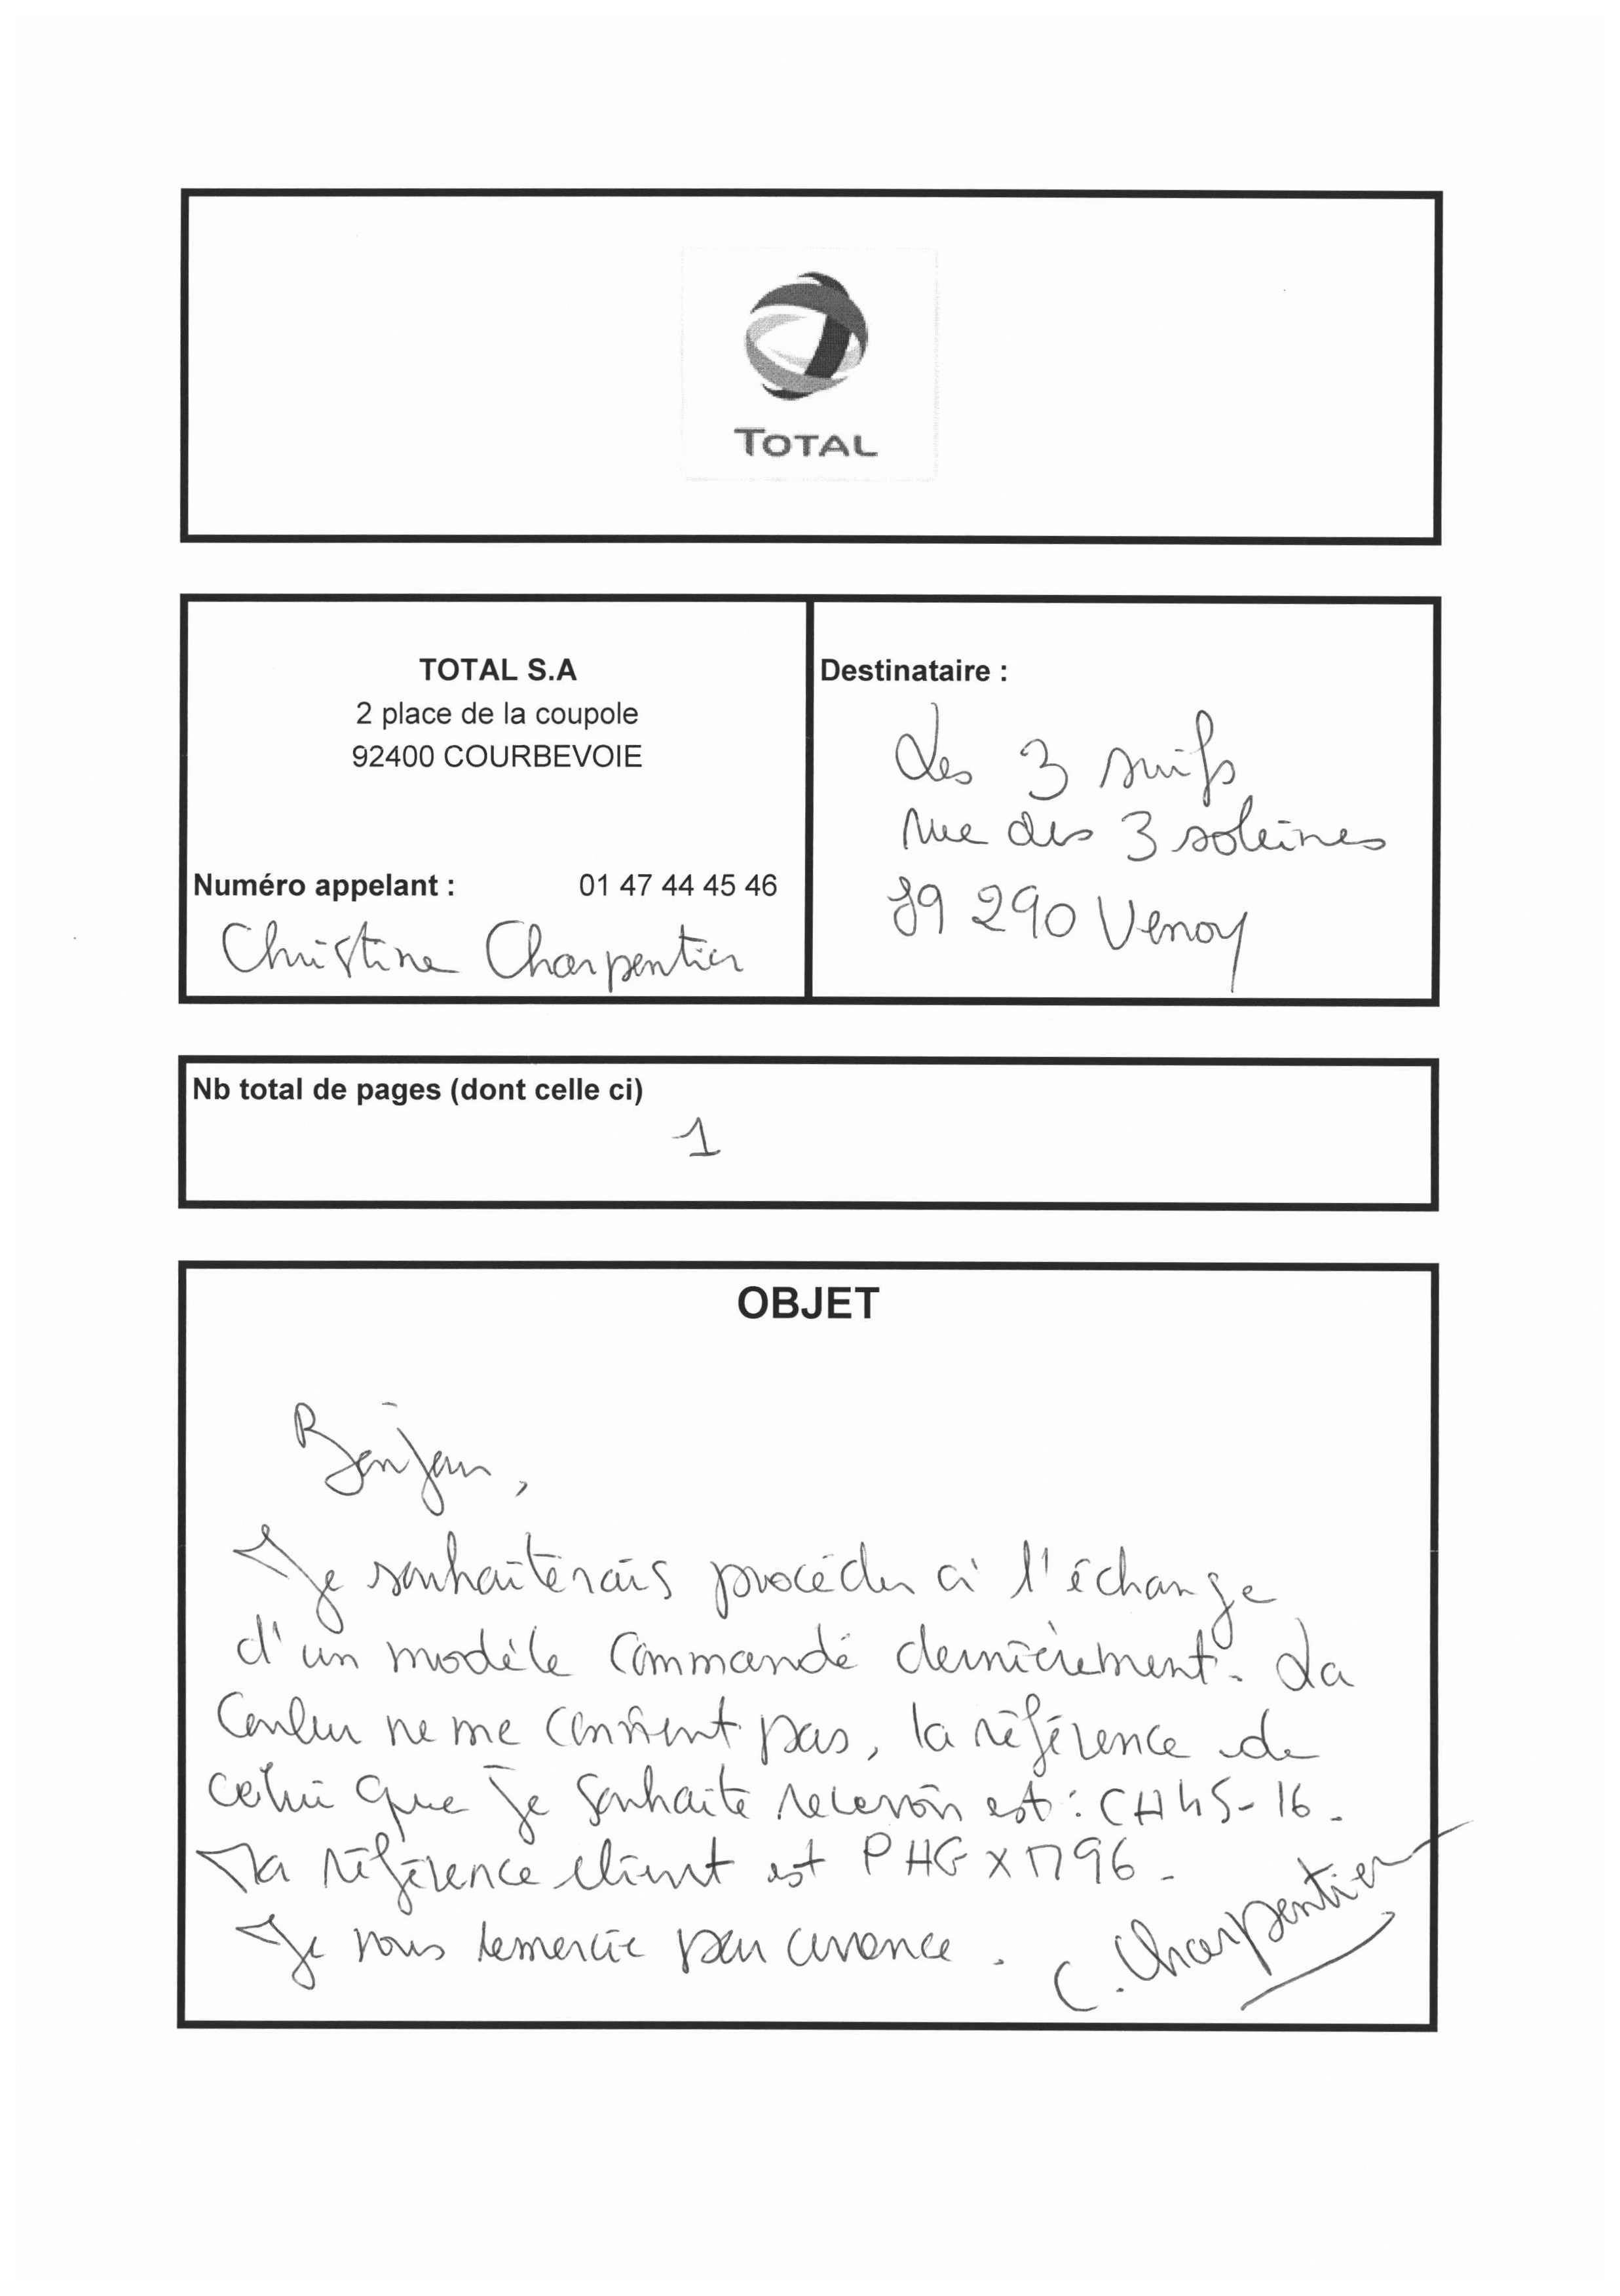 TOTAL
TOTAL S.A
2 place de la coupole
92400 COURBEVOIE
Numéro appelant : 01 47 44 45 46
Christine Charpentier
Destinataire :
Les 3 suifs
rue des 3 soleines
89 290 Venoy
Nb total de pages (dont celle ci)
1
OBJET
Bonjour,
Je souhaiterais procéder à l'échange
d'un modèle commandé dernièrement. La
couleur ne me convient pas, la référence de
celui que je souhaite recevoir est : CH45-16.
Ma référence client est
Je vous remercie par avance.
C. Charpentier